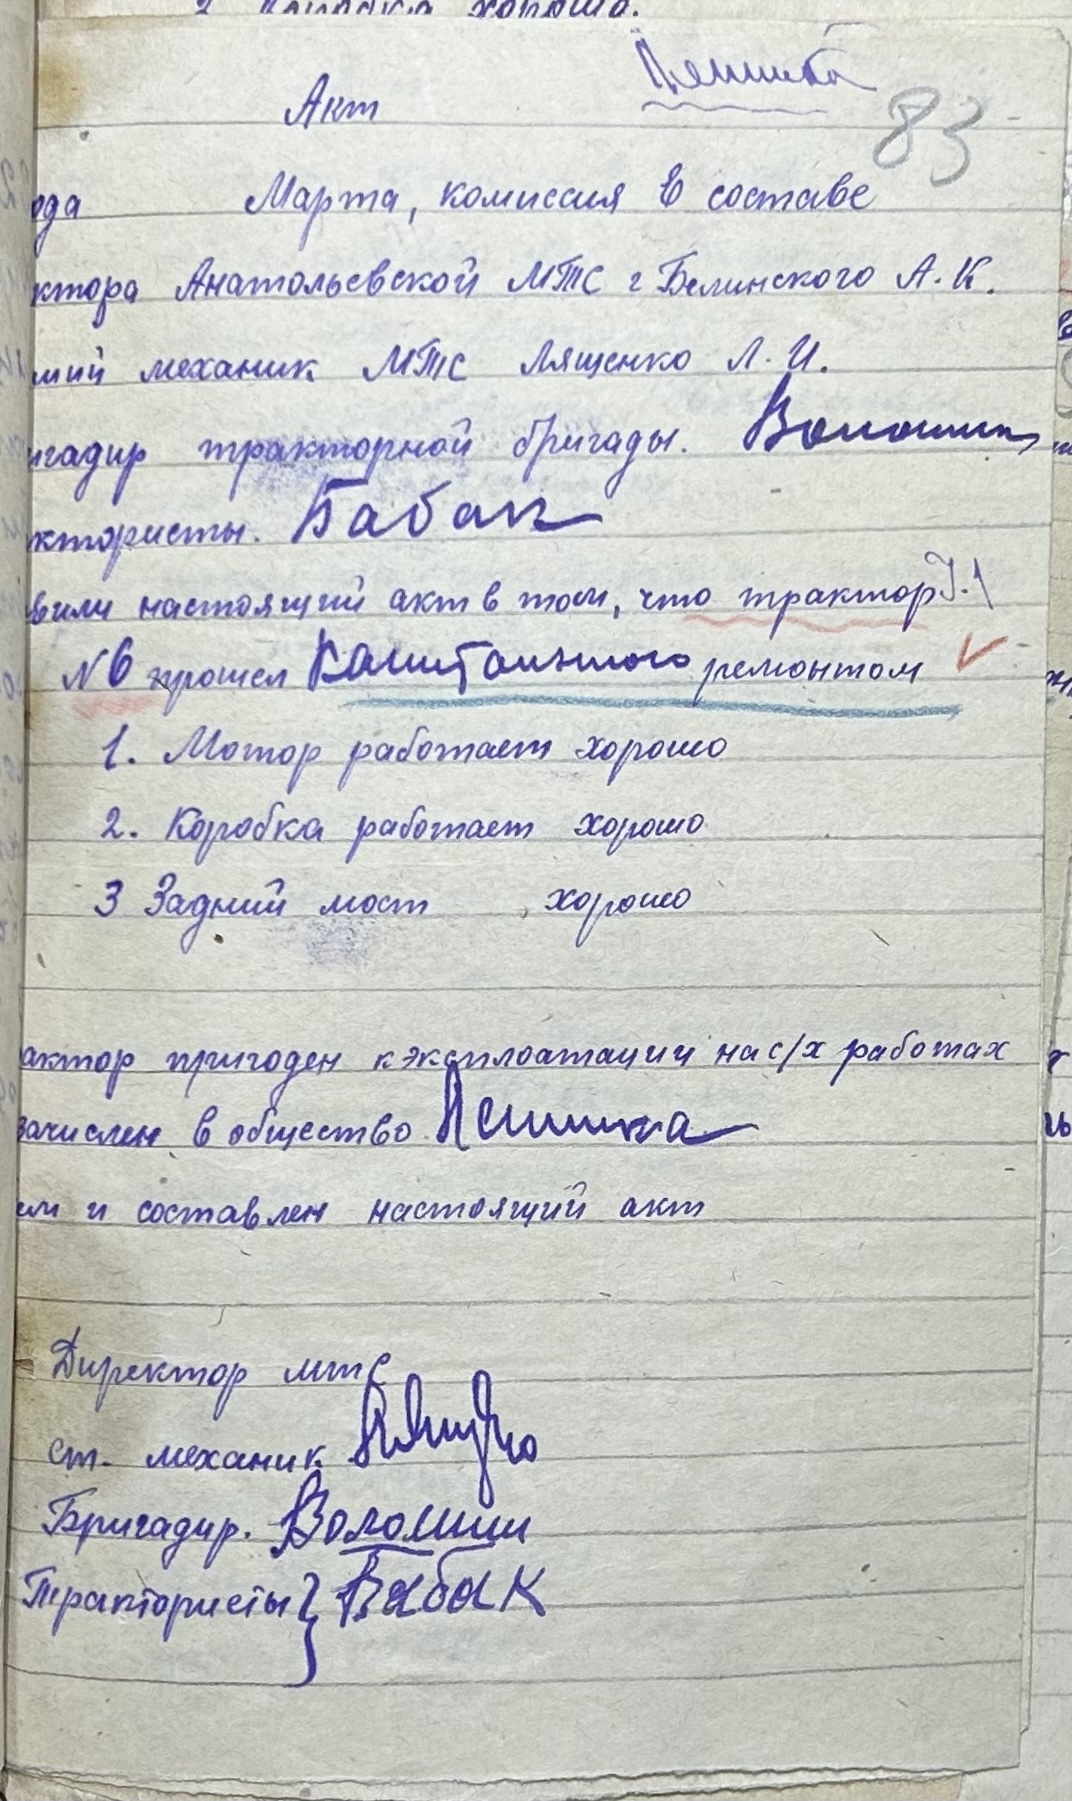 хороша.
Акт
83
ода Марта, комиссия в составе
ктора Анатольевской МТС г Белинского А. К.
ший механик МТС Лященко Л. И.
игадир тракторной бригады. Волошин
ктористы. Бабак
вили настоящий акт в том, что трактор
N6 прошел капитального ремонтом
1. Мотор работает хорошо
2. Коробка работает хорошо
3 Задний мост хорошо
актор пригоден к эксплоатации на с/х работах
зачислен в общество
ем и составлен настоящий акт
Директор мтс
ст. механик
Бригадир. Волошин
Трактористы } Бабак